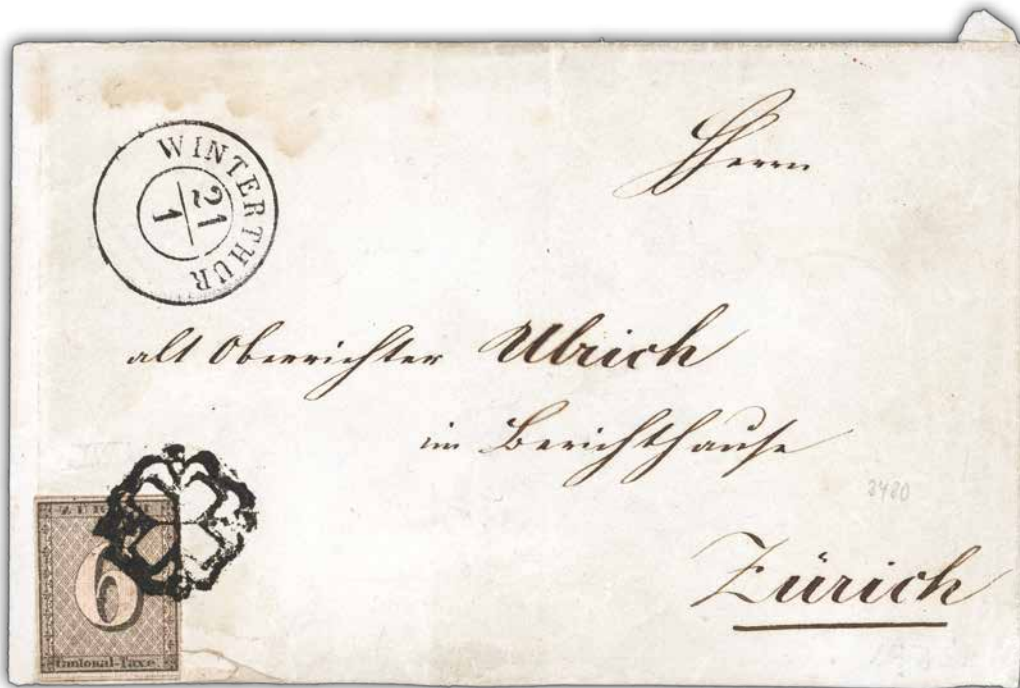 WINTERTHUR
21
1
Herrn
alt Oberrichter Ulrich
im Berichthause
3480
Zürich
6
Cantonal-Taxe